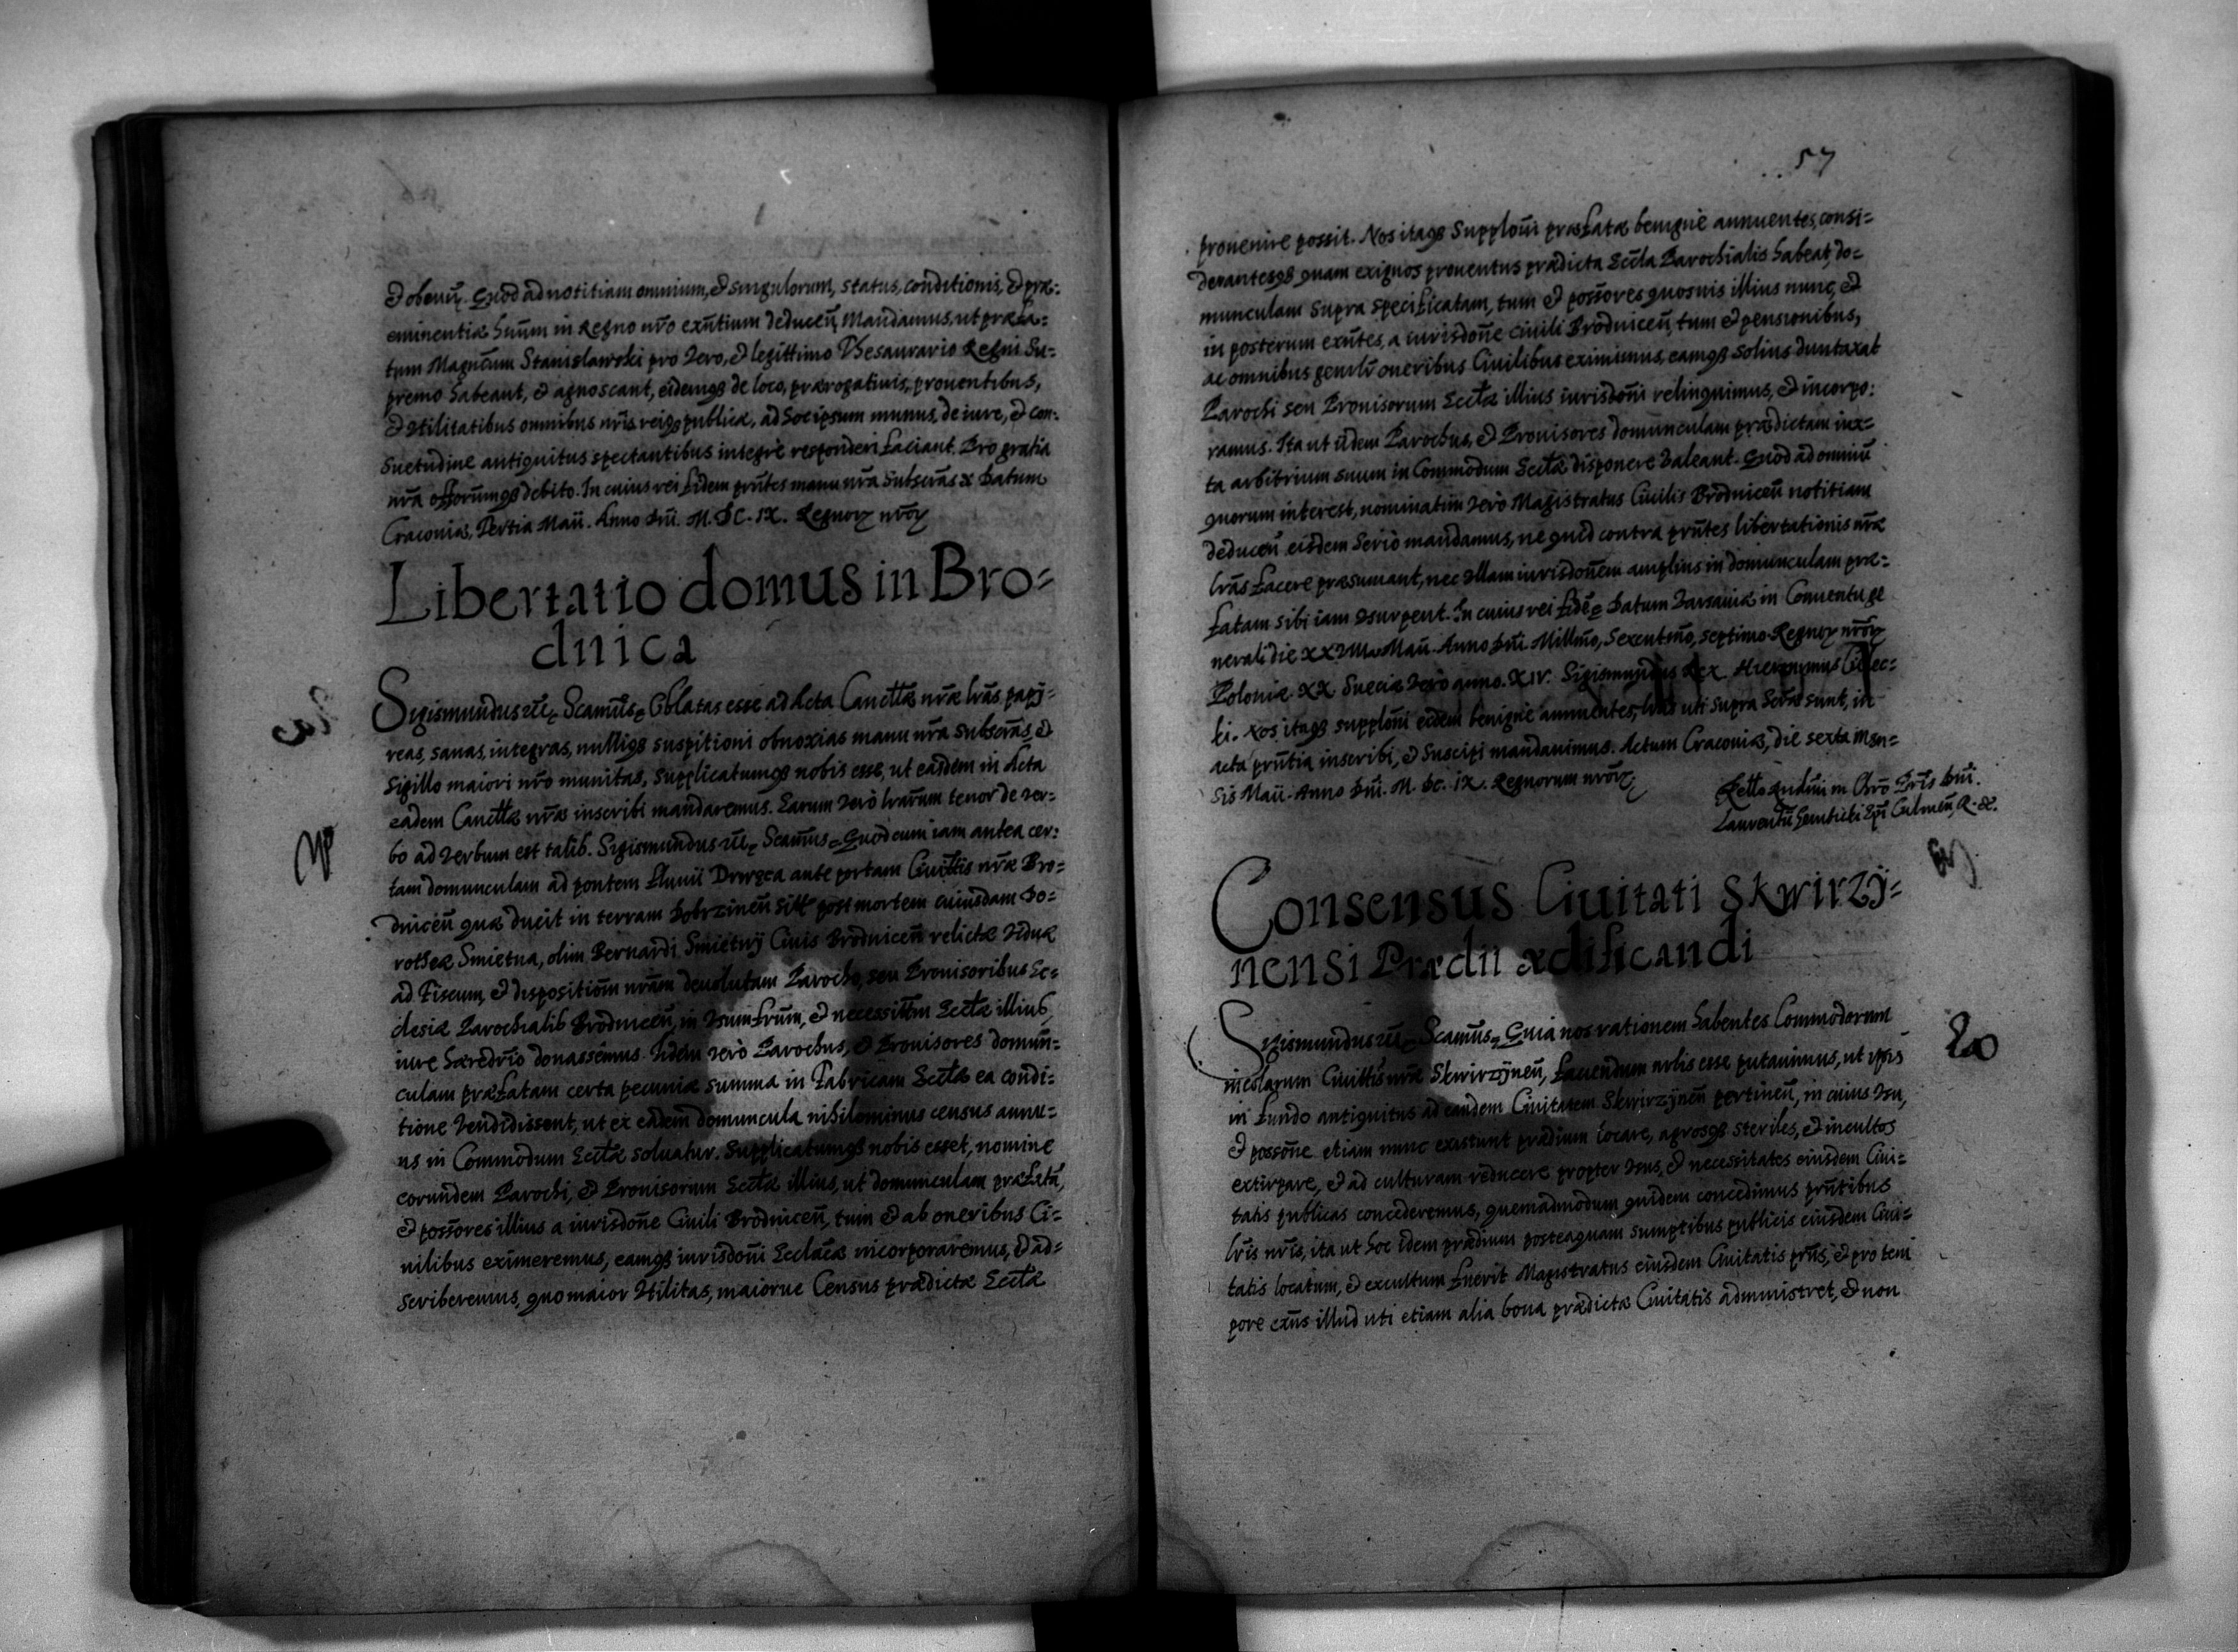 & obeun̄. Quod ad notitiam omnium, & singulorum, status, conditionis, & præ=
eminentiæ huūm in Regno nr̄o exn̄tium deducen̄ Mandamus, ut præfa=
tum Magn̄cum Stanislawski pro vero, & legittimo Thesaurario Regni Su=
premo habeant, & agnoscant, eidemq̃ de loco, prærogatiuis, prouentibus,
& vtilitatibus omnibus nr̄is reiq̃ publicæ, ad hoc ipsum munus, de iure, & con=
suetudine antiquitus spectantibus integrè responderi faciant. Pro gratia
nr̄a offorūmq̃ debito. In cuius rei fidem prn̄tes manu nr̄a subscrās & Datum
Cracouiæ, Tertia Maii. Anno Dn̄i. M. DC. IX. Regnorꝝ nrōrꝝ
Libertatio domus in Bro=
dnica
Sigismundus III, Scāmūs, Oblatas esse ad Acta Cancllæ nr̄æ lrās papy=
reas, sanas, integras, nulliq̃ suspitioni obnoxias manu nr̄a subscrās, &
sigillo maiori nr̄o munitas, supplicatumq̃ nobis esse, ut easdem in Acta
eadem Cancllæ nr̄æ inscribi mandaremus. Earum verò lrarūm tenor de ver=
bo ad verbum est talis. Sigismundus III, Scāmus, Quod cum iam antea cer=
tam domunculam ad pontem fluuii Drwęca ante portam Ciuittis nr̄æ Bro=
dnicen̄ quæ ducit in terram Dobrzinen̄ sitt post mortem cuiusdam Do=
rotheæ Smietna, olim Bernardi Smietny Ciuis Brodnicen̄ relictæ viduæ
ad Fiscum, & dispositiōm nrām deuolutam Parocho, seu Prouisoribus Ec=
clesiæ Parochialis Brodnicen̄, in vsumfrūm, & necessittm Ecctæ illius
iure hæredrīo donassemus. Iidem verò Parochus, & Prouisores domun=
culam præfatam certa pecuniæ summa in Fabricam Ecctæ ea condi=
tione vendidissent, ut ex eadem domuncula nihilominus census annu=
us in Commodum Ecctæ soluatur. Supplicatumq̃ nobis esset, nomine
eorundem Parochi, & Prouisorum Ecctæ illius, ut domunculam præfatā,
& possōres illius a iurisdōne Ciuili Brodnicen̄, tum & ab oneribus Ci=
uilibus eximeremus, eamq̃ iurisdōni Ecclācæ incorporaremus, & ad=
scriberemus, quo maior vtilitas, maiorue Census prædictæ Ecctæ
57
prouenire possit. Nos itaq̃ supplōni præfatæ benignè annuentes, consi=
derantesq̃ quam exiguos prouentus prædicta Eccla Parochialis habeat, do=
munculam supra specificatam, tum & possōres quosuis illius nunc, &
in posterum exn̄tes, a iurisdōne ciuili Brodnicen̄, tum & pensionibus,
ac omnibus genlīv oneribus Ciuilibus eximimus, eamq̃ solius duntaxat
Parochi seu Prouisorum Ecctæ illius iurisdōni relinquimus, & incorpo=
ramus. Ita ut iidem Parochus, & Prouisores domunculam prædictam iux=
ta arbitrium suum in Commodum Ecctæ disponere valeant. Quod ad omniū
quorum interest, nominatim verò Magistratus Ciuilis Brodnicen̄ notitiam
deducen̄ eisdem seriò mandamus, ne quid contra prn̄tes libertationis nr̄æ
lrās facere præsumant, nec vllam iurisdōnem amplius in domunculam præ=
fatam sibi iam vsurpent. In cuius rei fidē, Datum Varsauiæ in Conuentu ge
nerali die XXVIII Maii. Anno Dn̄i. Millm̄o, Sexcentm̄o, septimo Regnorꝝ nrōrꝝ
Poloniæ. XX Sueciæ verò anno. XIV. Sigismundus Rex. Hieronymus Cielec=
ki. Nos itaq̃ supplōni eidem benignè annuentes, lrās uti supra scrās sunt, in
acta prn̄tia inscribi, & suscipi mandauimus. Actum Cracouiæ, die sexta men=
sis Maii. Anno Dn̄i. M. DC. IX. Regnorum nrōrꝝ
Retto Rndīmi in Chrō Prīs Dn̄i.
Laurentii Gembicki Epī Culmen̄, R. &.
Consensus Ciuitati Skwirzÿ=
nensi Prædii ædificandi
Sigismundus III, Scāmūs, Quia nos rationem habentes Commodorum
incolarum Ciuittis nr̄æ Skwirzÿnen̄, faciendum nobis esse putauimus, ut ipsis
in fundo antiquitus ad eandem Ciuitatem Skwirzÿnen̄ pertinen̄, in cuius vsu,
& possōne etiam nunc existunt prædium locare, agrosq̃ steriles, & incultos
extirpare, & ad culturam reducere propter vsus, & necessitates eiusdem Ciui=
tatis publicas concederemus, quemadmodum quidem concedimus prn̄tibus
lrīs nr̄is, ita ut hoc idem prædium posteaquam sumptibus publicis eiusdem Ciui=
tatis locatum, & excultum fuerit Magistratus eiusdem Ciuitatis prn̄s, & pro tem
pore exn̄s illud uti etiam alia bona prædictæ Ciuitatis administret, & non